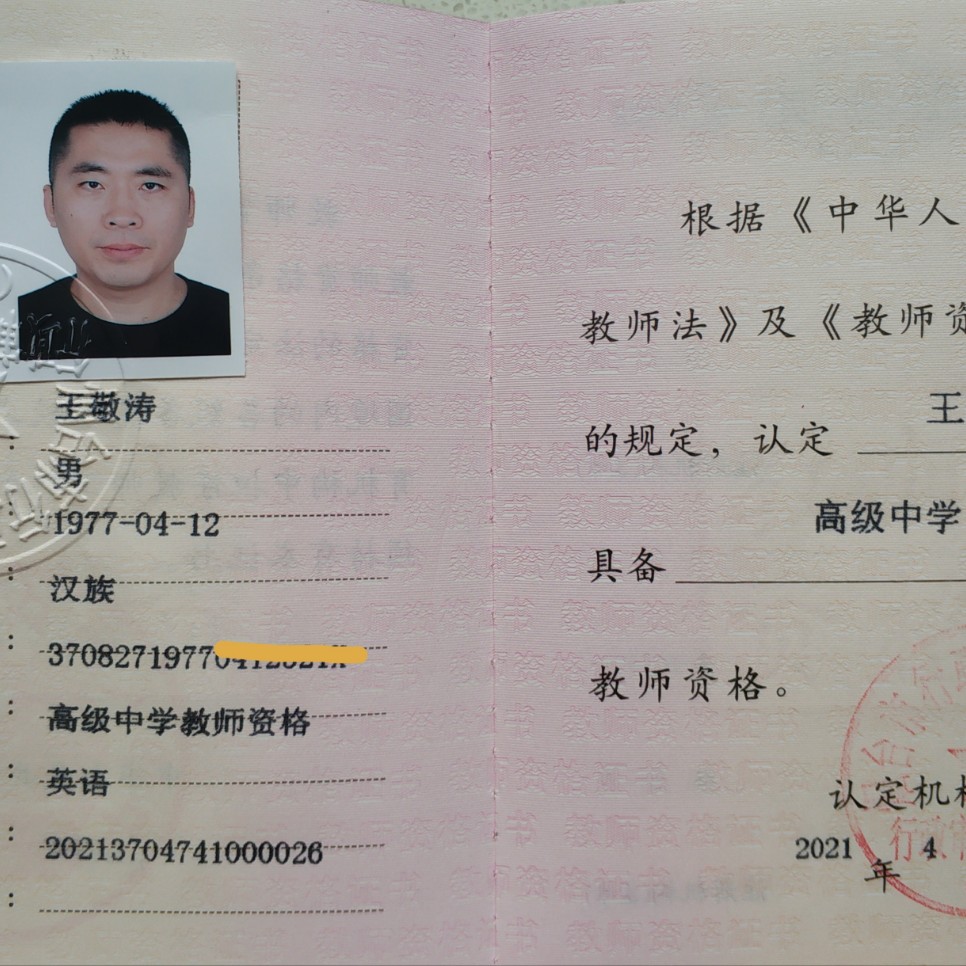 王敬涛
男
1977-04-12
汉族
3708271977
高级中学教师资格
英语
20213704741000026
根据《中华人
教师法》及《教师资
的规定，认定 王
具备 高级中学
教师资格。
认定机
2021 年 4
行政